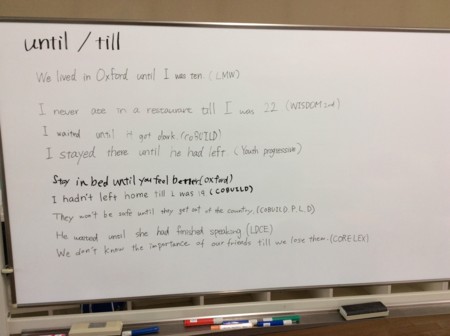 until / till
We lived in Oxford until I was ten. (LMW)
I never ate in a restaurant till I was 22 (WISDOM 2nd)
I waited until it got dark. (COBUILD)
I stayed there until he had left (Youth progressive)
Stay in bed until you feel better (Oxford)
I hadn't left home till I was 19. (COBUILD)
They won't be safe until they get out of the country. (COBUILD.P.L.D)
He waited until she had finished speaking (LDCE)
We don't know the importance of our friends till we lose them. (CORE-LEX)